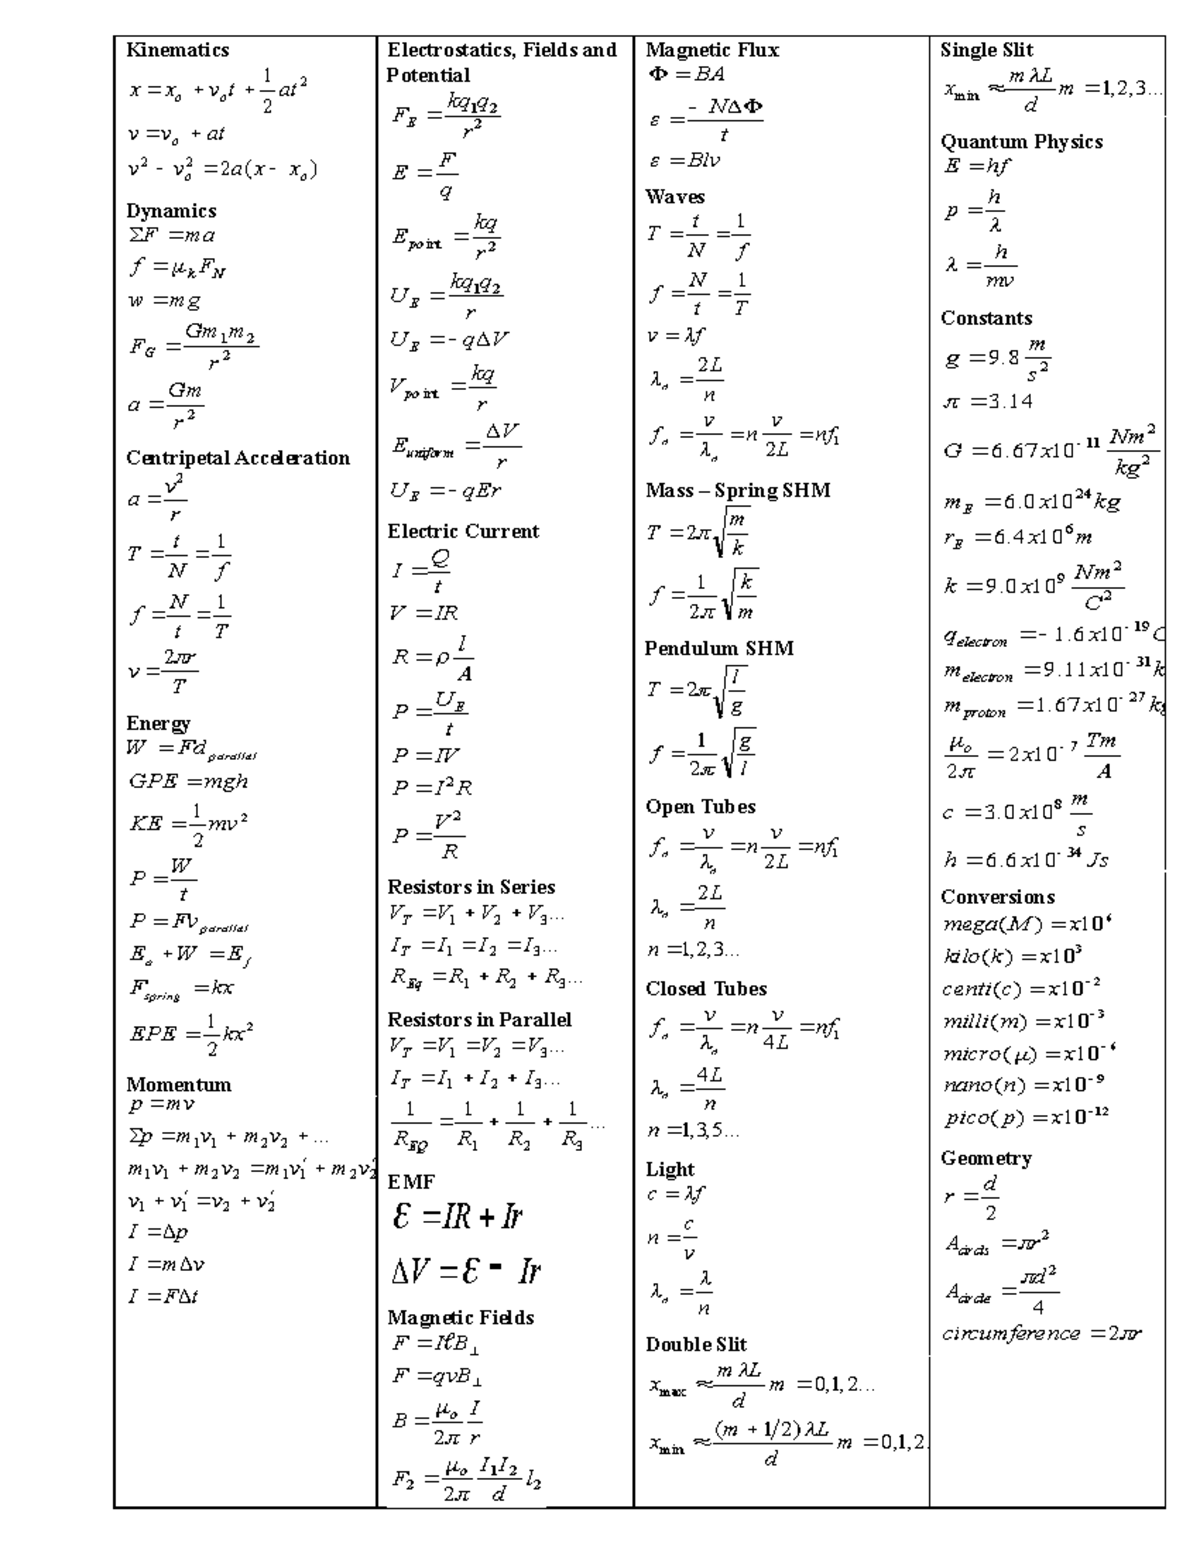 Kinematics
x = x₀ + v₀t + 1/2 at²
v = v₀ + at
v² - v₀² = 2a(x - x₀)
Dynamics
ΣF = ma
f = μₖF_N
w = mg
F_G = Gm₁m₂/r²
a = Gm/r²
Centripetal Acceleration
a = v²/r
T = t/N = 1/f
f = N/t = 1/T
v = 2πr/T
Energy
W = Fd_parallel
GPE = mgh
KE = 1/2 mv²
P = W/t
P = Fv_parallel
E₀ + W = E_f
F_spring = kx
EPE = 1/2 kx²
Momentum
p = mv
Σp = m₁v₁ + m₂v₂ + ...
m₁v₁ + m₂v₂ = m₁v₁′ + m₂v₂′
v₁ + v₁′ = v₂ + v₂′
I = Δp
I = mΔv
I = FΔt
Electrostatics, Fields and
Potential
F_E = kq₁q₂/r²
E = F/q
E_point = kq/r²
U_E = kq₁q₂/r
U_E = - qΔV
V_point = kq/r
E_uniform = ΔV/r
U_E = - qEr
Electric Current
I = Q/t
V = IR
R = ρ l/A
P = U_E/t
P = IV
P = I²R
P = V²/R
Resistors in Series
V_T = V₁ + V₂ + V₃...
I_T = I₁ = I₂ = I₃...
R_Eq = R₁ + R₂ + R₃...
Resistors in Parallel
V_T = V₁ = V₂ = V₃...
I_T = I₁ + I₂ + I₃...
1/R_EQ = 1/R₁ + 1/R₂ + 1/R₃ ...
EMF
ℰ = IR + Ir
ΔV = ℰ - Ir
Magnetic Fields
F = IℓB⊥
F = qvB⊥
B = μ₀/2π I/r
F₂ = μ₀/2π I₁I₂/d l₂
Magnetic Flux
Φ = BA
ε = - NΔΦ/t
ε = Blv
Waves
T = t/N = 1/f
f = N/t = 1/T
v = λf
λₙ = 2L/n
fₙ = v/λₙ = n v/2L = nf₁
Mass – Spring SHM
T = 2π√(m/k)
f = 1/2π √(k/m)
Pendulum SHM
T = 2π√(l/g)
f = 1/2π √(g/l)
Open Tubes
fₙ = v/λₙ = n v/2L = nf₁
λₙ = 2L/n
n = 1,2,3...
Closed Tubes
fₙ = v/λₙ = n v/4L = nf₁
λₙ = 4L/n
n = 1,3,5...
Light
c = λf
n = c/v
λₙ = λ/n
Double Slit
x_max ≈ mλL/d m = 0,1,2...
x_min ≈ (m + 1/2)λL/d m = 0,1,2.
Single Slit
x_min ≈ mλL/d m = 1,2,3...
Quantum Physics
E = hf
p = h/λ
λ = h/mv
Constants
g = 9.8 m/s²
π = 3.14
G = 6.67x10⁻¹¹ Nm²/kg²
m_E = 6.0x10²⁴kg
r_E = 6.4x10⁶m
k = 9.0x10⁹ Nm²/C²
q_electron = - 1.6x10⁻¹⁹C
m_electron = 9.11x10⁻³¹k
m_proton = 1.67x10⁻²⁷kg
μ₀/2π = 2x10⁻⁷ Tm/A
c = 3.0x10⁸ m/s
h = 6.6x10⁻³⁴Js
Conversions
mega(M) = x10⁶
kilo(k) = x10³
centi(c) = x10⁻²
milli(m) = x10⁻³
micro(μ) = x10⁻⁶
nano(n) = x10⁻⁹
pico(p) = x10⁻¹²
Geometry
r = d/2
A_circle = πr²
A_circle = πd²/4
circumference = 2πr